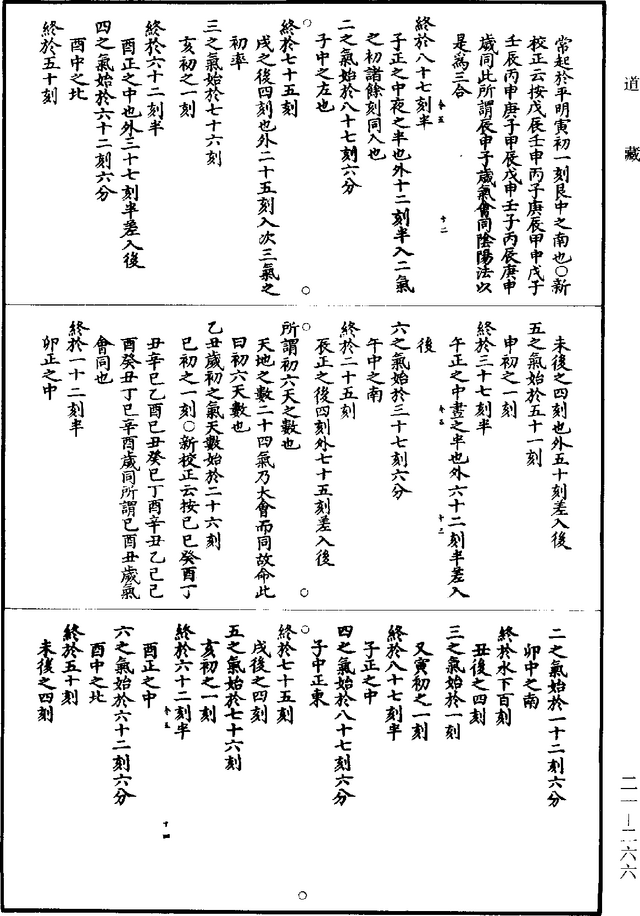 道藏
常起於平明寅初一刻艮中之南也○新
校正云按戊辰壬申丙子庚辰甲申戊子
壬辰丙申庚子甲辰戊申壬子丙辰庚申
歲同此所謂辰申子歲氣會同陰陽法以
是爲三合
終於八十七刻半
子正之中夜之半也外十二刻半入二氣
之初諸餘刻同入也
二之氣始於八十七刻六分
子中之左也
終於七十五刻
戌之後四刻也外二十五刻入次三氣之
初率
三之氣始於七十六刻
亥初之一刻
終於六十二刻半
酉正之中也外三十七刻半差入後
四之氣始於六十二刻六分
酉中之北
終於五十刻
未後之四刻也外五十刻差入後
五之氣始於五十一刻
申初之一刻
終於三十七刻半
午正之中晝之半也外六十二刻半差入
後
六之氣始於三十七刻六分
午中之南
終於二十五刻
辰正之後四刻外七十五刻差入後
所謂初六天之數也
天地之數二十四氣乃大會而同故命此
曰初六天數也
乙丑歲初之氣天數始於二十六刻
巳初之一刻○新校正云按己巳癸酉丁
丑辛巳乙酉己丑癸巳丁酉辛丑乙巳己
酉癸丑丁巳辛酉歲同所謂巳酉丑歲氣
會同也
終於一十二刻半
卯正之中
二之氣始於一十二刻六分
卯中之南
終於水下百刻
丑後之四刻
三之氣始於一刻
又寅初之一刻
終於八十七刻半
子正之中
四之氣始於八十七刻六分
子中正東
終於七十五刻
戌後之四刻
五之氣始於七十六刻
亥初之一刻
終於六十二刻半
酉正之中
六之氣始於六十二刻六分
酉中之北
終於五十刻
未後之四刻
二一—二六六